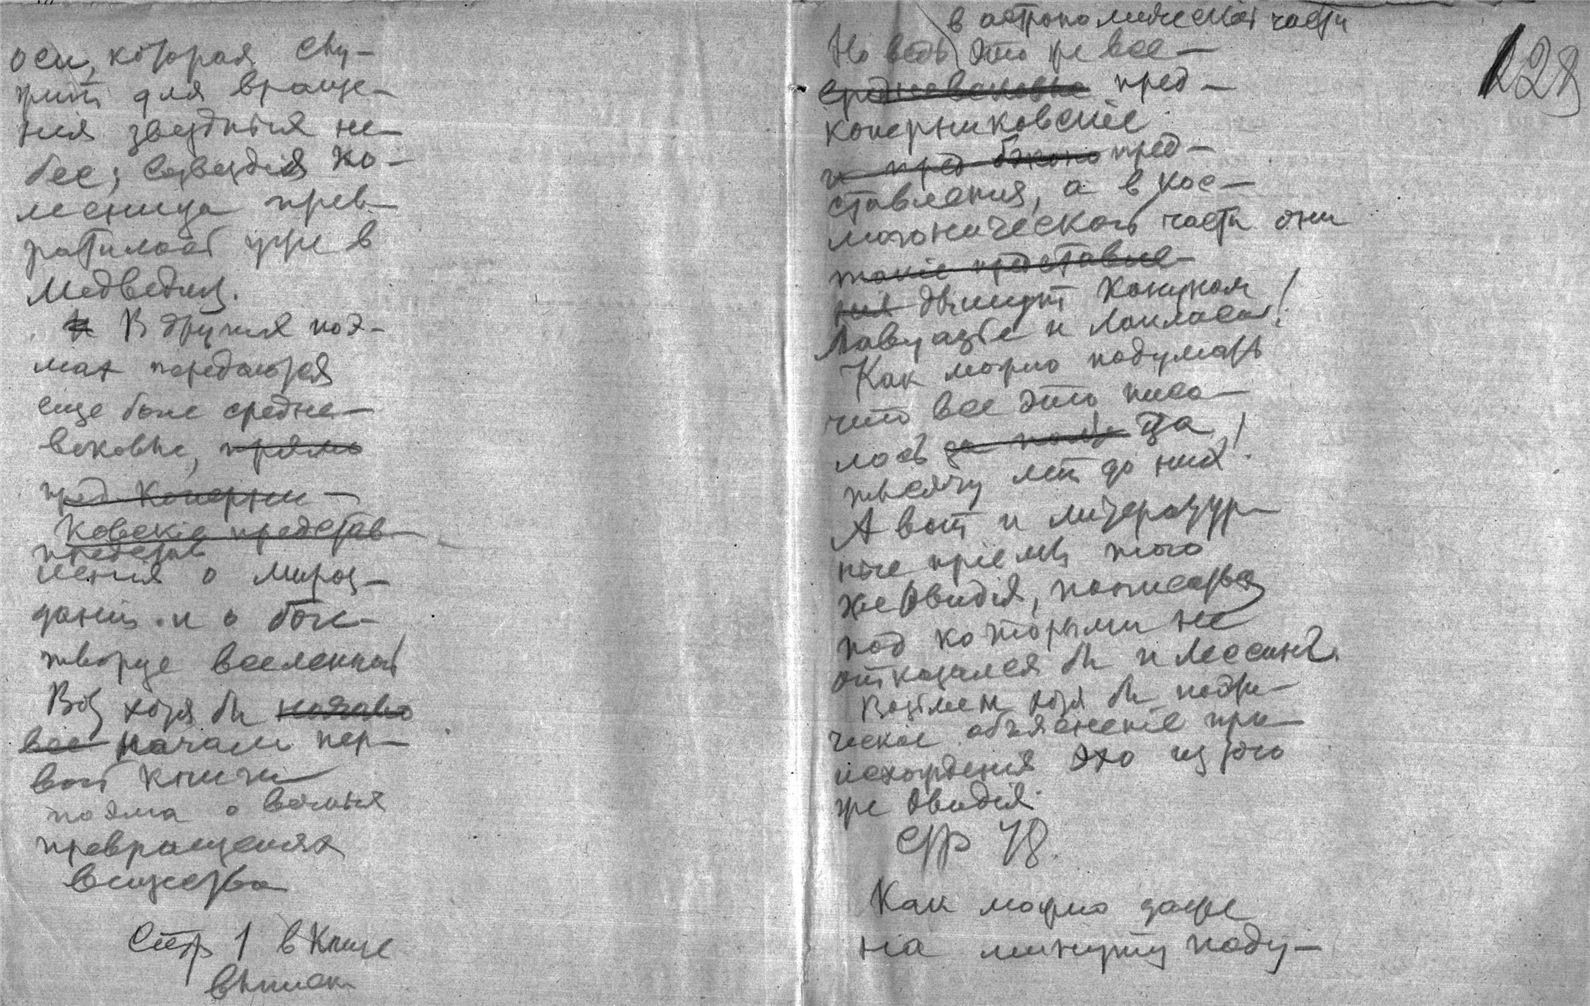 оси, которая слу-
жит для враще-
ния звездных не-
бес; созвездия Ко-
лесница прев-
ратилось уже в
Медведиц.
В других поэ-
мах передаются
еще более средне-
вековые, прямо
пред Коперни-
ковскіе представ
представ
ления о мироз-
даніи и о боге-
творце вселенной
Вот хотя бы
все начало пер-
вой книги
поэма о вечных
превращениях
вещества
Стр 1 в книге
выписок
128
в астрономической части
Но ведь это уже все-
средневековые пред-
коперниковскіе
и пред пред-
ставления, а в кос-
могонической части они
такіе представле-
ния дышут кануном
Лавуазье и Лапласа!
Как можно подумать
что все это писа-
лось за
тысячу лет до них!
А вот и литератур-
ные приемы того
же Овидія, подписаться
под которыми не
отказался бы и Лессинг.
Возьмем хотя бы поэти-
ческое объясненіе про-
исхождения эхо из того
же Овидія.
Стр 78.
Как можно даже
на минуту поду-